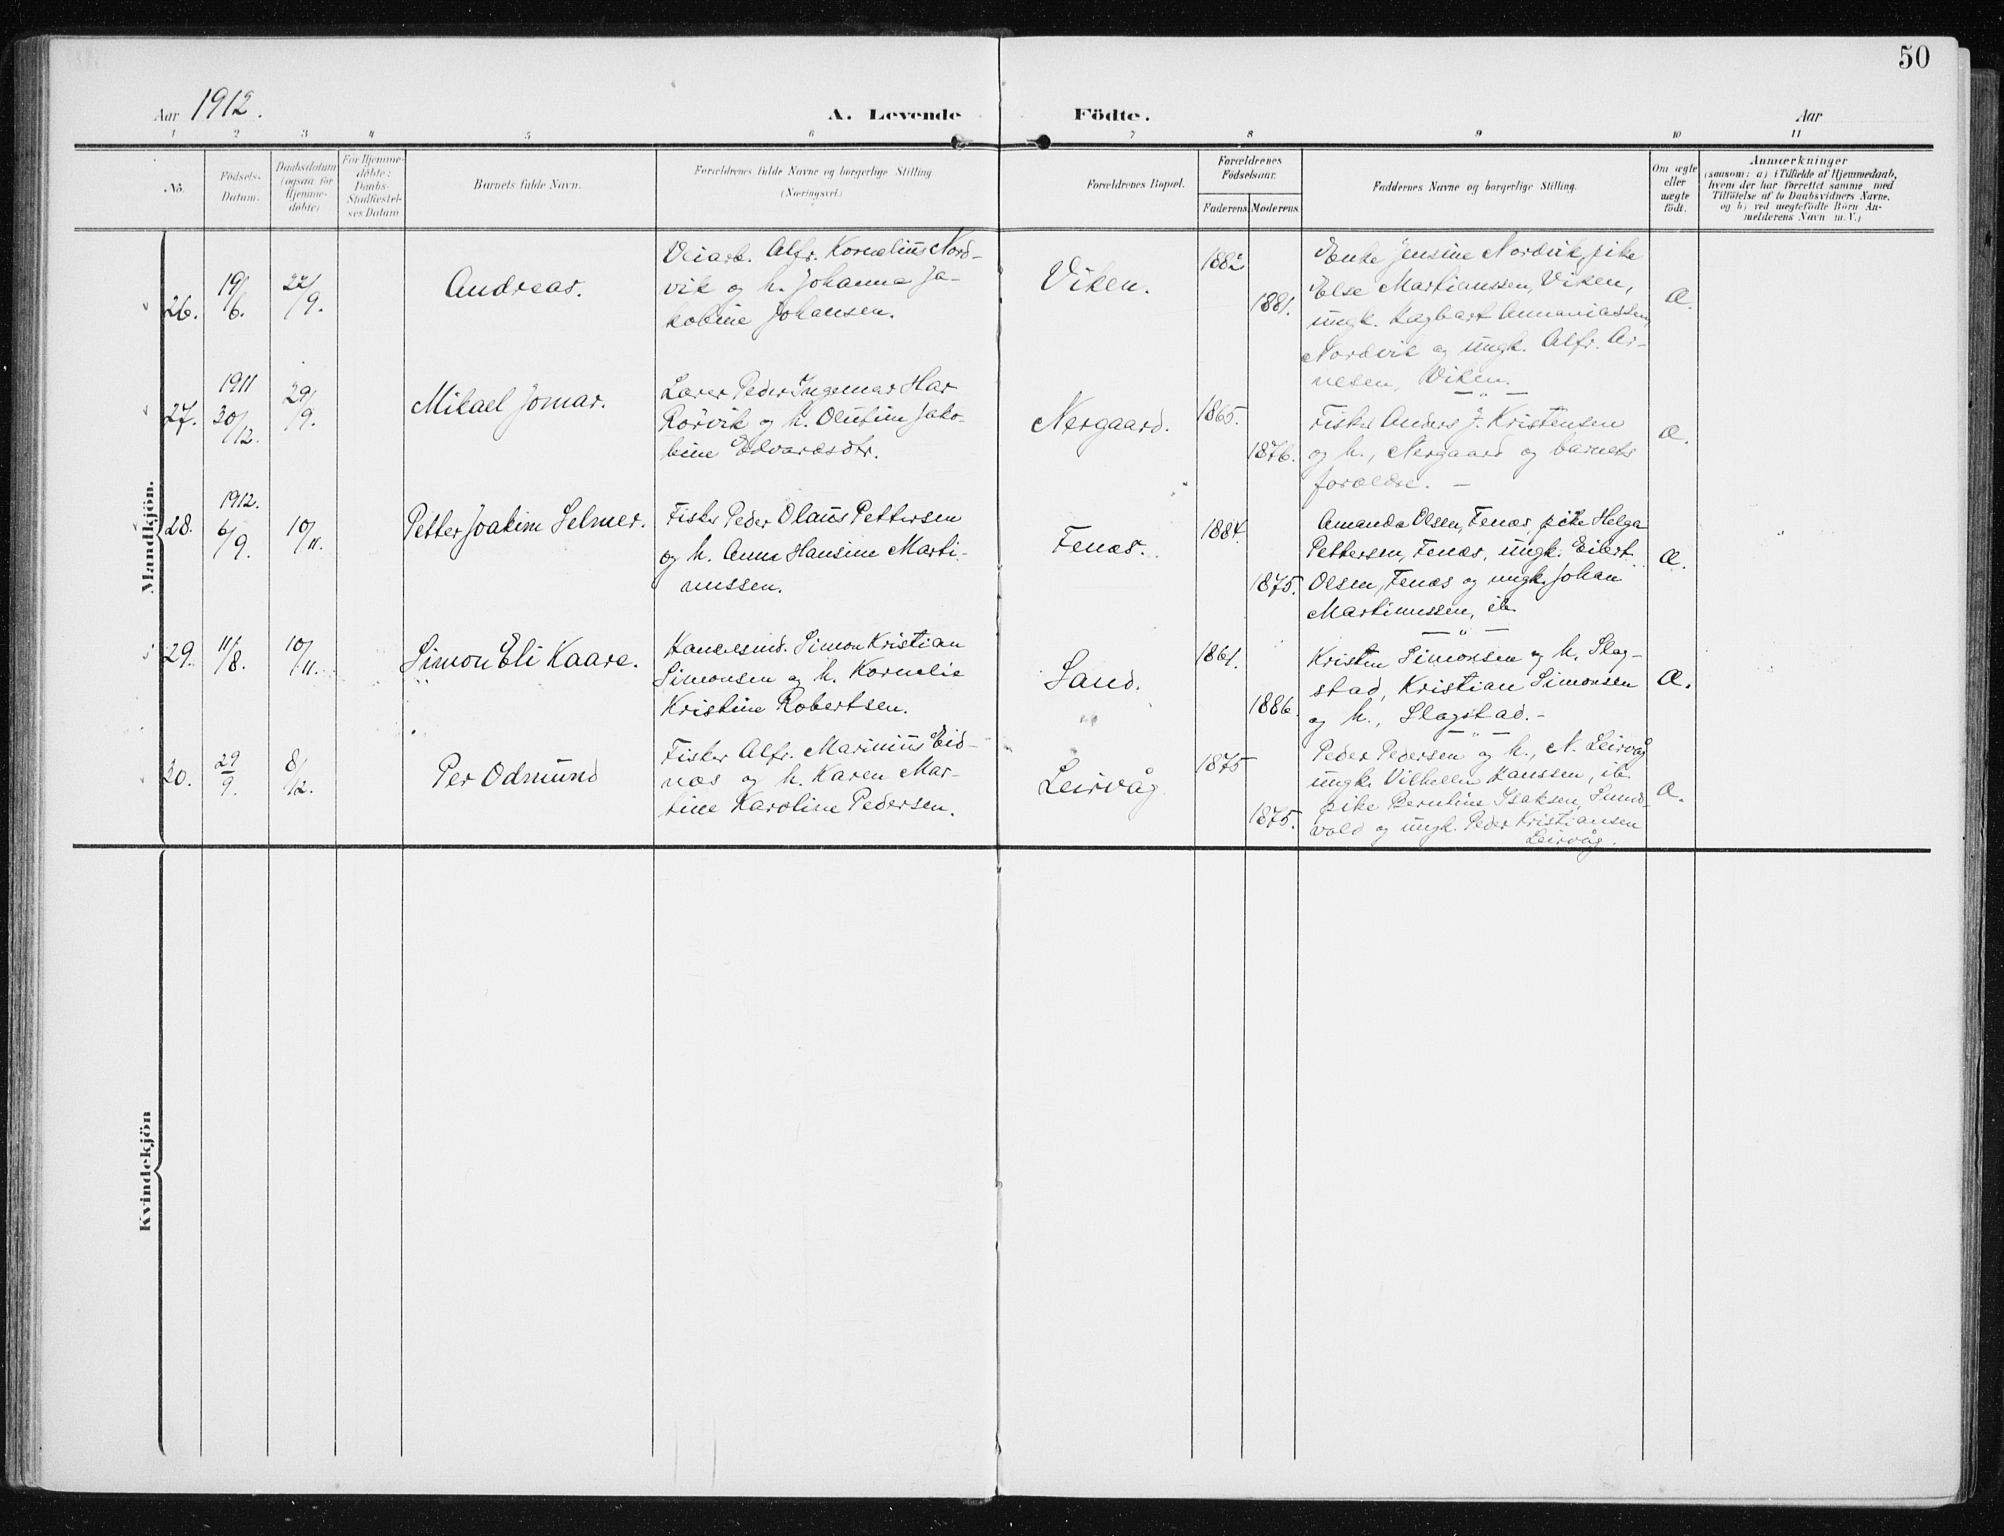 50
Aar 1912. A. Levende Födte. Aar
1 2 3 4 5 6 7 8 9 10 11
No. Födsels-Datum. Daabsdatum (ogsaa for Hjemme-döbte) For Hjemme-döbte: Daabs-Stadfæstel-ses Datum Barnets fulde Navn. Forældrenes fulde Navne og borgerlige Stilling (Næringsvei.) Forældrenes Bopæl. Forældrenes Födselsaar. Faderens Moderens Faddernes Navne og borgerlige Stilling. Om ægte eller uægte födt. Anmærkninger (saasom: a) i Tilfælde af Hjemmedaab, hvem der har forrettet samme med Tilföielse af to Daabsvidners Navne, og b) ved uægtefödte Börn An-melderens Navn m. V.)
Mandkjön.
26. 19/6. 22/9. Andreas.
Veiarb. Alfr. Kornelius Nord-
vik og h. Johanna Ja-
kobine Johansen.
Viken. 1882 1881.
Enke Jensine Nordvik, pike
Else Martinussen, Viken,
ungk. Hagbart Annaniassen,
Nordvik og ungk. Alfr. Ar-
nesen, Viken.
Æ.
27. 1911 30/12. 29/9. Mikael Jomar.
Lærer Peder Ingemar Har
Rörvik og h. Olufine Jako-
bine Edvardsdtr.
Nergaard. 1865. 1876.
Fisker Anders J. Kristensen
og h., Nergaard og barnets
forældre. —
Æ.
28. 1912. 6/9. 10/11. Petter Joakim Selmer.
Fisker Peder Olaus Pettersen
og h. Anna Hansine Marti-
nussen.
Fenes. 1884. 1875.
Amanda Olsen, Fenes, pike Helga
Pettersen, Fenes, ungk. Eilert
Olsen, Fenes og ungk. Johan
Martinussen, ib.
Æ.
29. 11/8. 10/11. Simon Eli Kaare.
Handelsmd. Simon Kristian
Simonsen og h. Kornelie
Kristine Robertsen.
Sand. 1861. 1886.
Kristen Simonsen og h. Slag-
stad, Kristian Simonsen
og h., Slagstad. -
Æ.
30. 29/9. 8/12. Per Odmund
Fisker Alfr. Marinius Eid-
nes og h. Karen Mar-
tine Karoline Pedersen.
Leirvåg. 1875 1875.
Peder Pedersen og h., N. Leirvåg
ungk. Vilhelm Hanssen, ib.
pike Berntine Isaksen, Sund-
vold og ungk. Peder Kristiansen
Leirvåg.
Æ.
Kvindekjön